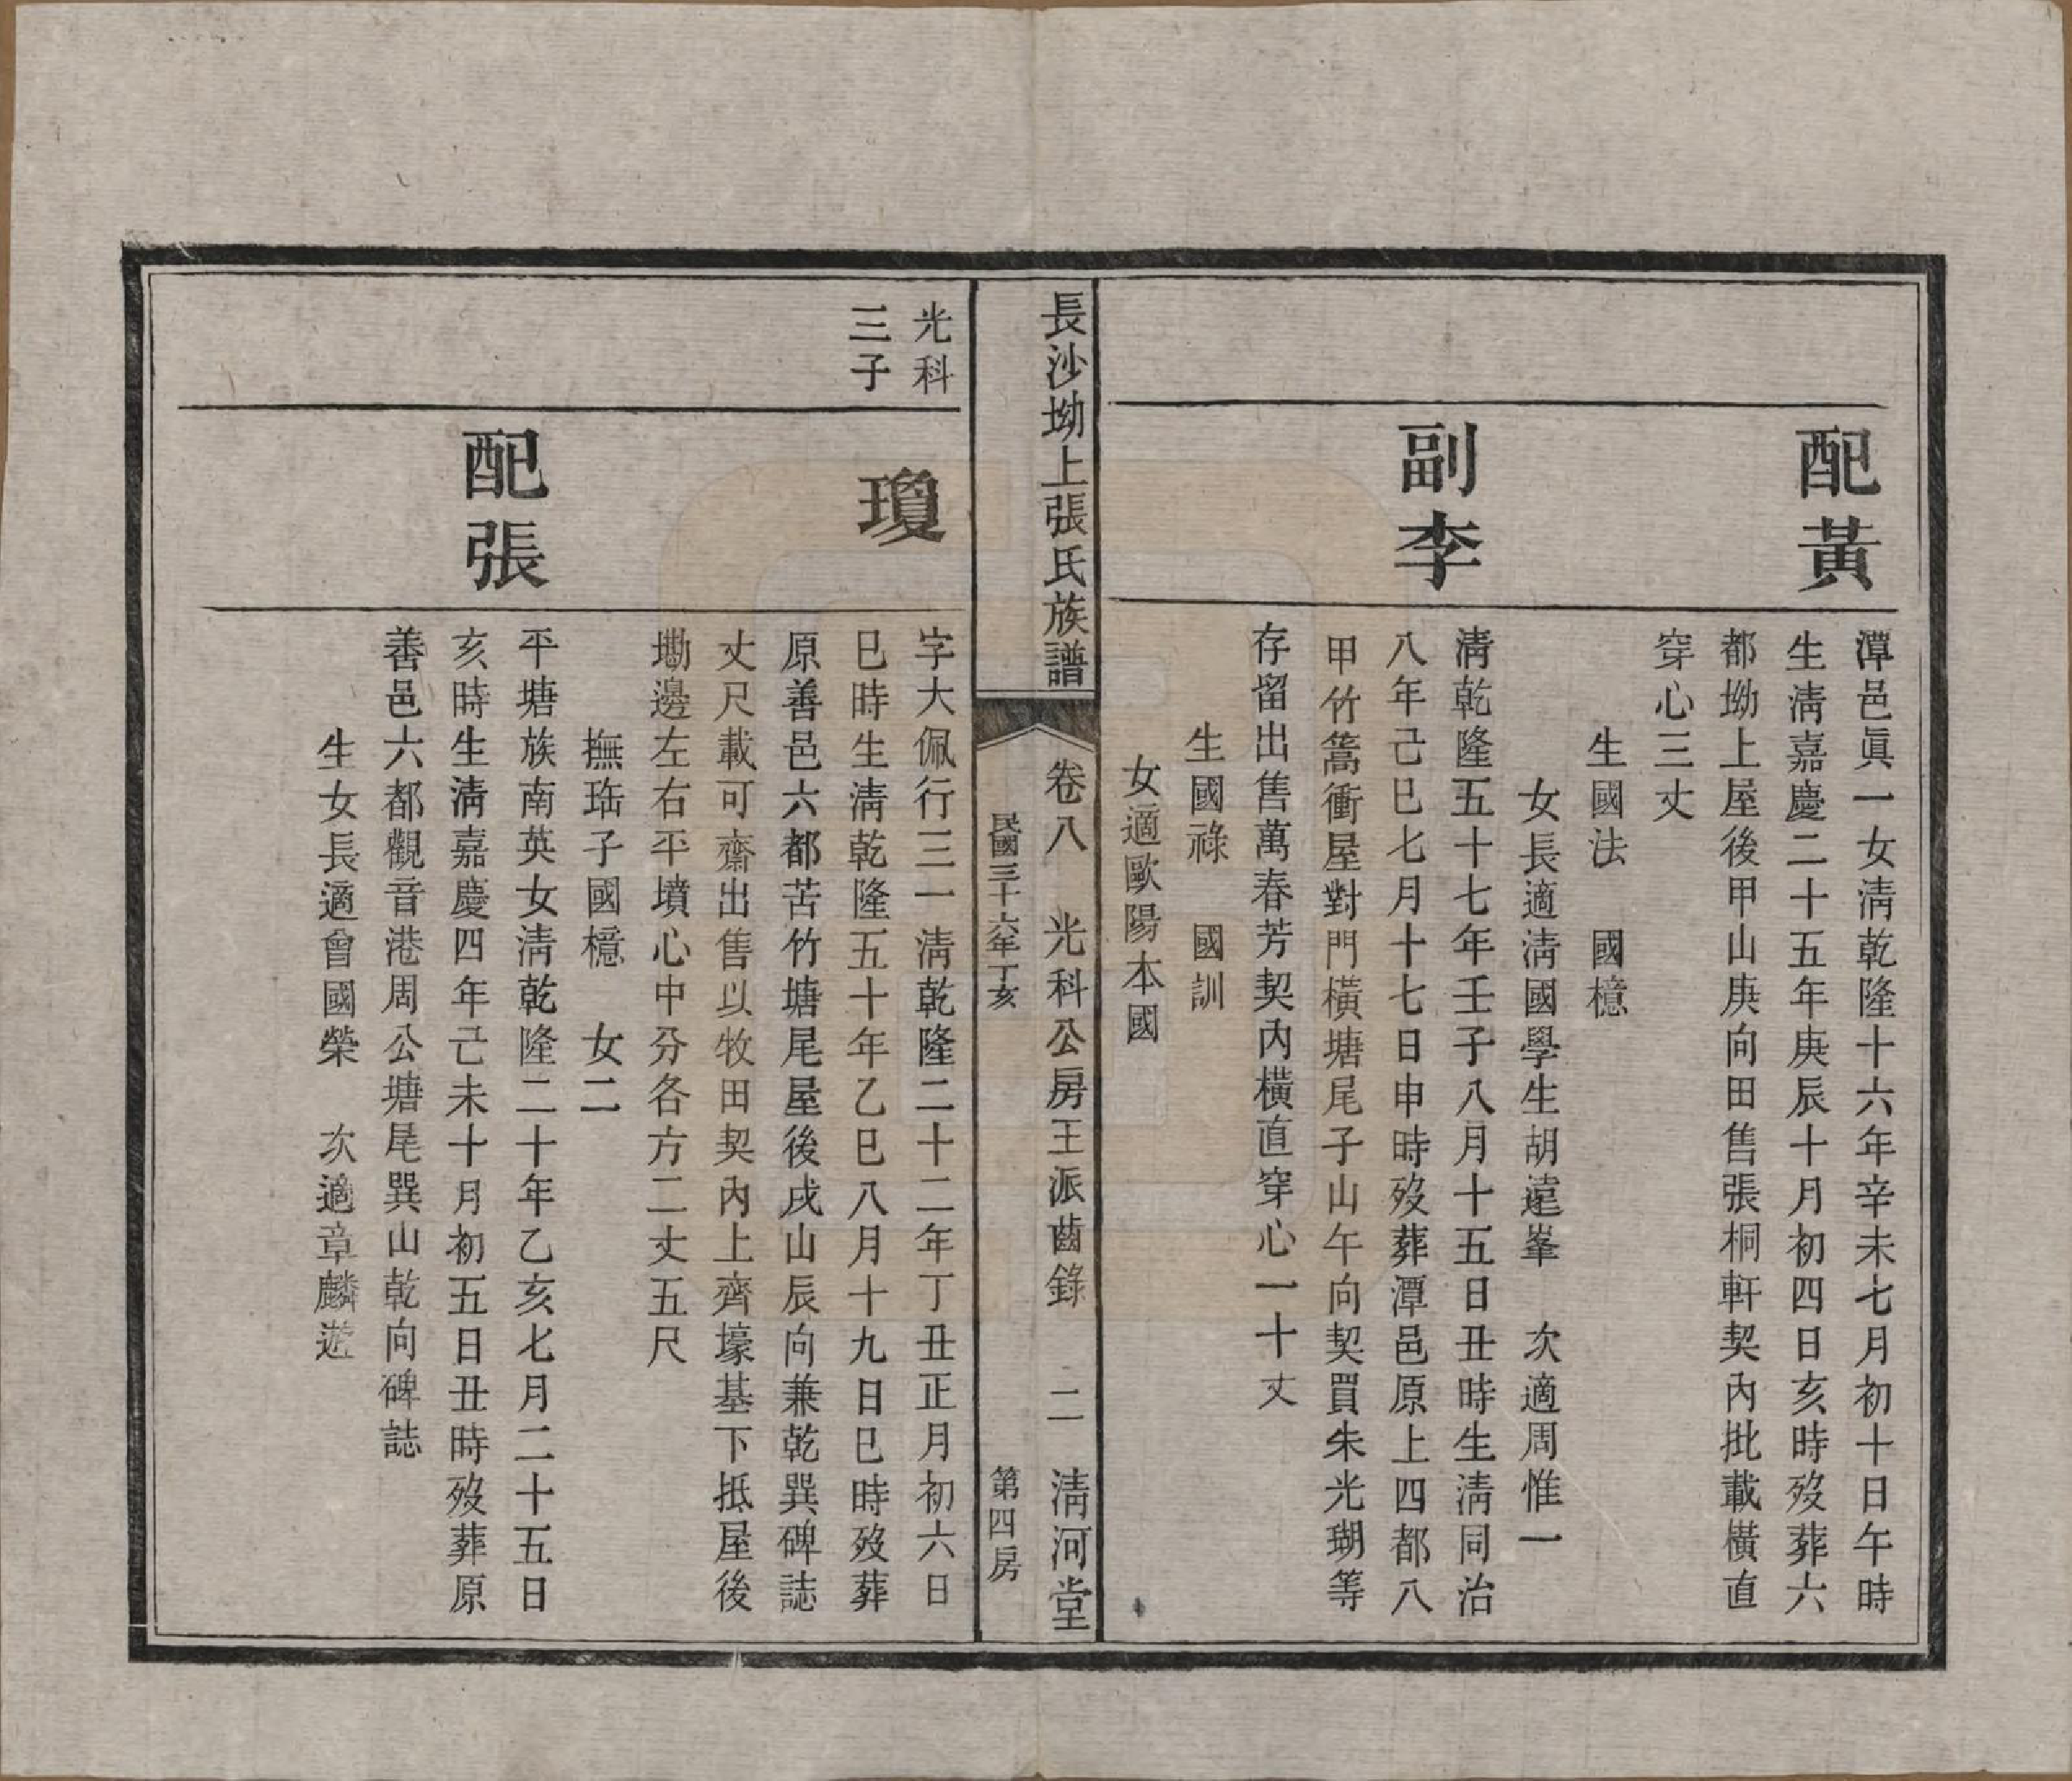 配黃
潭邑眞一女淸乾隆十六年辛未七月初十日午時
生淸嘉慶二十五年庚辰十月初四日亥時歿葬六
都坳上屋後甲山庚向田售張桐軒契內批載橫直
穿心三丈
生國法　國檍
女長適淸國學生胡遠峯　次適周惟一
副李
淸乾隆五十七年壬子八月十五日丑時生淸同治
八年己巳七月十七日申時歿葬潭邑原上四都八
甲竹篙衝屋對門橫塘尾子山午向契買朱光瑚等
存留出售萬春芳契內橫直穿心一十丈
生國祿　國訓
女適歐陽本國
長沙坳上張氏族譜
卷八　光科公房王派齒錄　二　淸河堂
民國三十六年丁亥
第四房
光科
三子
瓊
字大佩行三一淸乾隆二十二年丁丑正月初六日
巳時生淸乾隆五十年乙巳八月十九日巳時歿葬
原善邑六都苦竹塘尾屋後戌山辰向兼乾巽碑誌
丈尺載可齋出售以牧田契內上齊壕基下抵屋後
墈邊左右平墳心中分各方二丈五尺
撫珤子國檍　女二
配張
平塘族南英女淸乾隆二十年乙亥七月二十五日
亥時生淸嘉慶四年己未十月初五日丑時歿葬原
善邑六都觀音港周公塘尾巽山乾向碑誌
生女長適曾國榮　次適章麟遊